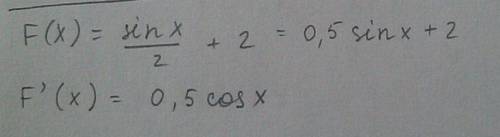 F(x) = sin x / 2 + 2 = 0,5 sin x + 2
F'(x) = 0,5 cos x